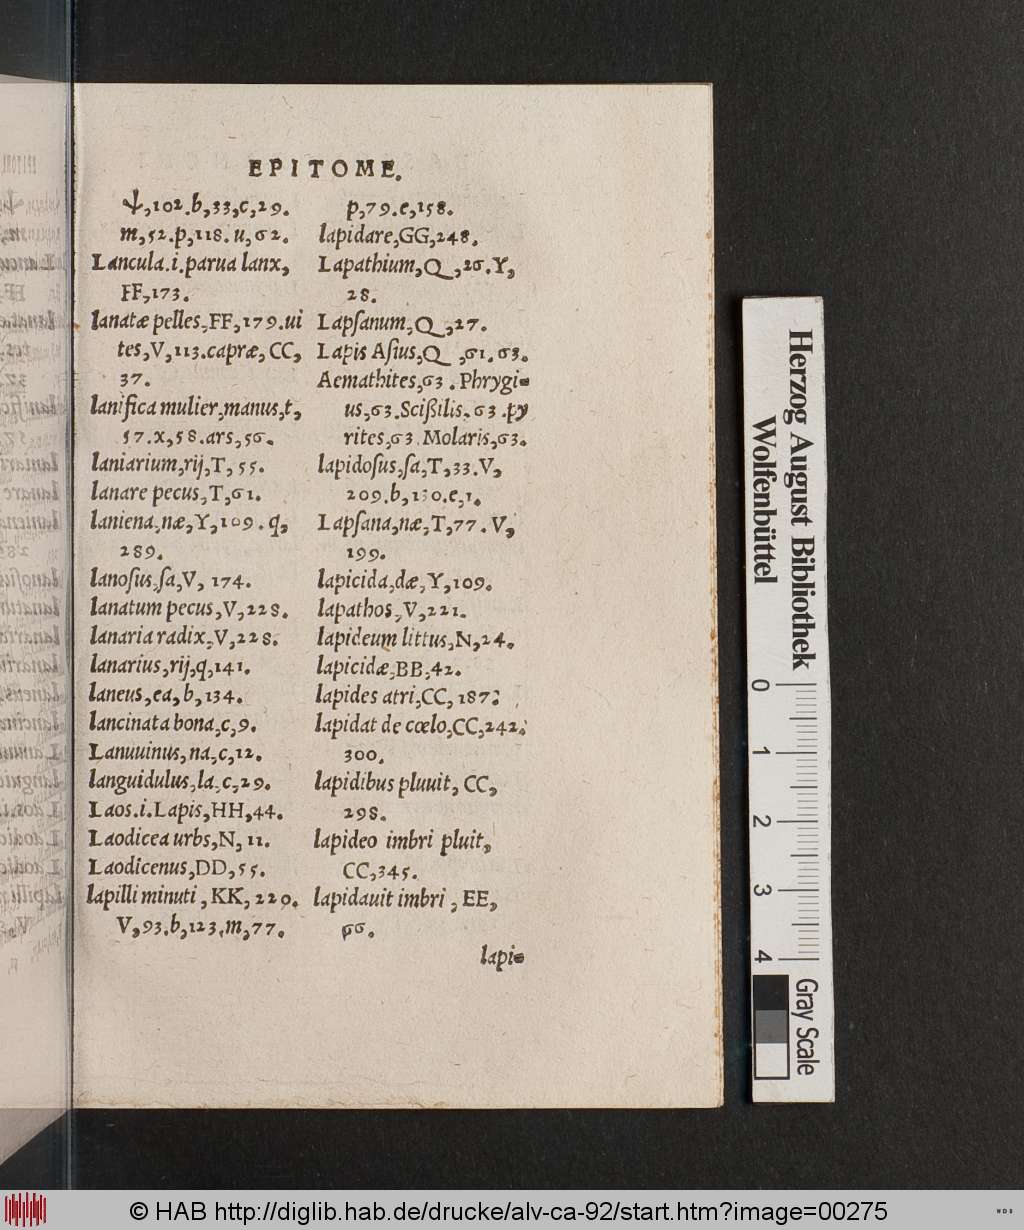 EPITOME.
Ψ,102.b,33,c,29.
m,52.p,118.u,62.
Lancula.i.parua lanx,
FF,173.
lanatæ pelles,FF,179.ui
tes,V,113.capræ,CC,
37.
lanifica mulier,manus,t,
57.x,58.ars,56.
laniarium,rij,T,55.
lanare pecus,T,61.
laniena,næ,Y,109.q,
289.
lanoſus,ſa,V, 174.
lanatum pecus,V,228.
lanaria radix,V,228.
lanarius,rij,q,141.
laneus,ea,b,134.
lancinata bona,c,9.
Lanuuinus,na,c,12.
languidulus,la,c,29.
Laos.i.Lapis,HH,44.
Laodicea urbs,N,11.
Laodicenus,DD,55.
lapilli minuti, KK, 220.
V,93.b,123.m,77.
p,79.e,158.
lapidare,GG,248.
Lapathium,Q,26.Y,
28.
Lapſanum,Q,27.
Lapis Aſius,Q,61.63.
Aemathites,63.Phrygi-
us,63.Scißilis.63.py
rites,63.Molaris,63.
lapidoſus,ſa,T,33.V,
209.b,130.e,1.
Lapſana,næ,T,77.V,
199.
lapicida,dæ,Y,109.
lapathos,V,221.
lapideum littus,N,24.
lapicidæ,BB,42.
lapides atri,CC,187:
lapidat de cœlo,CC,242.
300.
lapidibus pluuit, CC,
298.
lapideo imbri pluit,
CC,345.
lapidauit imbri, EE,
66.
lapi-
Herzog August Bibliothek
Wolfenbüttel
0 1 2 3 4
Gray Scale
© HAB http://diglib.hab.de/drucke/alv-ca-92/start.htm?image=00275